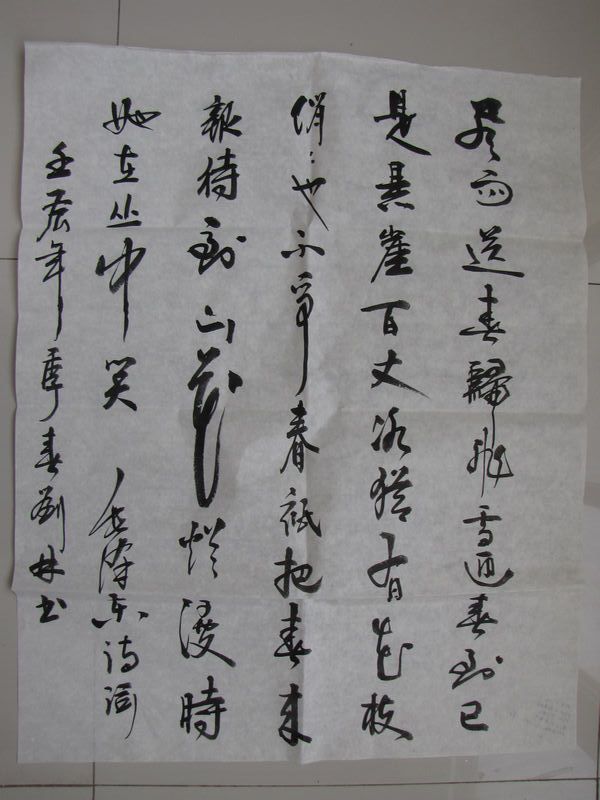 风雨送春歸飛雪迎春到已
是悬崖百丈冰猶有花枝
俏々也不争春祇把春来
報待到山花烂漫時
她在丛中笑 毛泽东诗词
壬辰年季春劉林书